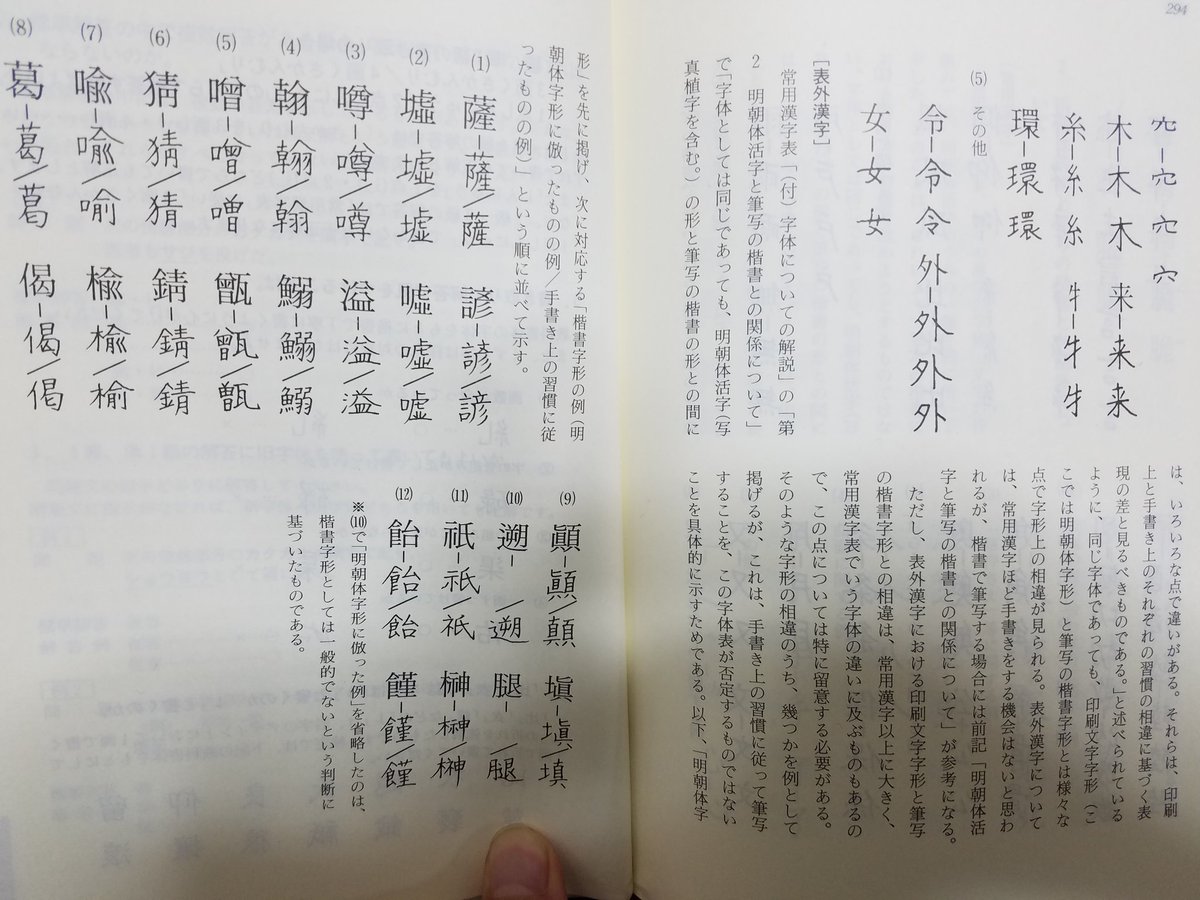 294
穴-穴 穴 穴
木-木 木 来-来 来
糸-糸 糸 牜-牜 牜
環-環 環
(5) その他
令-令 令 外-外 外 外
女-女 女
[表外漢字]
常用漢字表「(付)字体についての解説」の「第
2 明朝体活字と筆写の楷書との関係について」
で「字体としては同じであっても、明朝体活字(写
真植字を含む。)の形と筆写の楷書の形との間に
は、いろいろな点で違いがある。それらは、印刷
上と手書き上のそれぞれの習慣の相違に基づく表
現の差と見るべきものである。」と述べられている
ように、同じ字体であっても、印刷文字字形(こ
こでは明朝体字形)と筆写の楷書字形とは様々な
点で字形上の相違が見られる。表外漢字について
は、常用漢字ほど手書きをする機会はないと思わ
れるが、楷書で筆写する場合には前記「明朝体活
字と筆写の楷書との関係について」が参考になる。
ただし、表外漢字における印刷文字字形と筆写
の楷書字形との相違は、常用漢字以上に大きく、
常用漢字表でいう字体の違いに及ぶものもあるの
で、この点については特に留意する必要がある。
そのような字形の相違のうち、幾つかを例として
掲げるが、これは、手書き上の習慣に従って筆写
することを、この字体表が否定するものではない
ことを具体的に示すためである。以下、「明朝体字
形」を先に掲げ、次に対応する「楷書字形の例(明
朝体字形に倣ったものの例/手書き上の習慣に従
ったものの例)」という順に並べて示す。
(1) 薩-薩/薩 諺-諺/諺
(2) 墟-墟/墟 嘘-嘘/嘘
(3) 噂-噂/噂 溢-溢/溢
(4) 翰-翰/翰 鰯-鰯/鰯
(5) 噌-噌/噌 甑-甑/甑
(6) 猜-猜/猜 錆-錆/錆
(7) 喩-喩/喻 楡-楡/榆
(8) 葛-葛/葛 偈-偈/偈
(9) 顚-顚/顛 塡-塡/填
(10) 遡-/遡 腿-/腿
(11) 祇-祇/祇 榊-榊/榊
(12) 飴-飴/飴 饉-饉/饉
※(10)で「明朝体字形に倣った例」を省略したのは、
楷書字形としては一般的でないという判断に
基づいたものである。